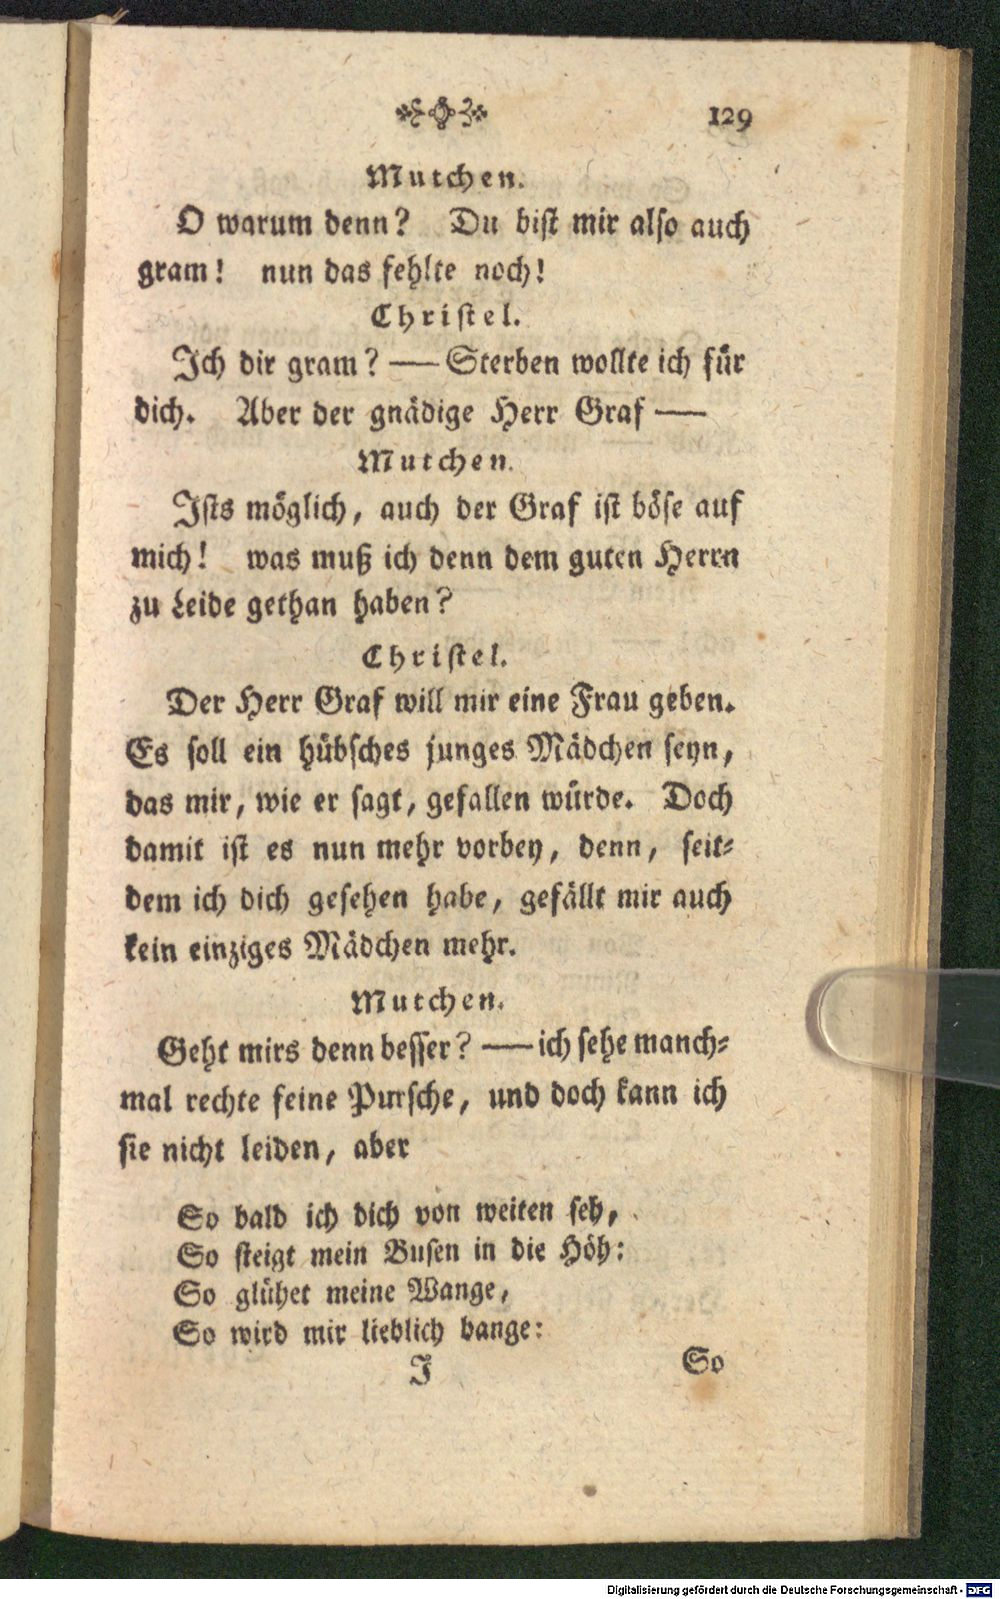 129
Mutchen.
O warum denn? Du bist mir also auch
gram! nun das fehlte noch!
Christel.
Ich dir gram? — Sterben wollte ich für
dich. Aber der gnädige Herr Graf —
Mutchen.
Ists möglich, auch der Graf ist böse auf
mich! was muß ich denn dem guten Herrn
zu Leide gethan haben?
Christel.
Der Herr Graf will mir eine Frau geben.
Es soll ein hübsches junges Mädchen seyn,
das mir, wie er sagt, gefallen würde. Doch
damit ist es nun mehr vorbey, denn, seit-
dem ich dich gesehen habe, gefällt mir auch
kein einziges Mädchen mehr.
Mutchen.
Geht mirs denn besser? — ich sehe manch-
mal rechte feine Pursche, und doch kann ich
sie nicht leiden, aber
So bald ich dich von weiten seh,
So steigt mein Busen in die Höh:
So glühet meine Wange,
So wird mir lieblich bange:
I So
Digitalisierung gefördert durch die Deutsche Forschungsgemeinschaft - DFG